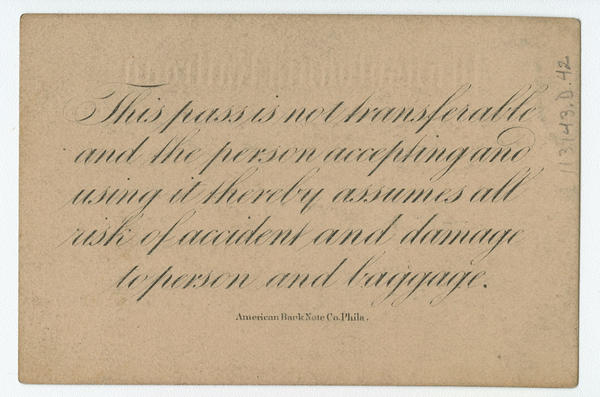 This pass is not transferable
and the person accepting and
using it thereby assumes all
risk of accident and damage
to person and baggage.
American Bank Note Co. Phila.
113143.D.42